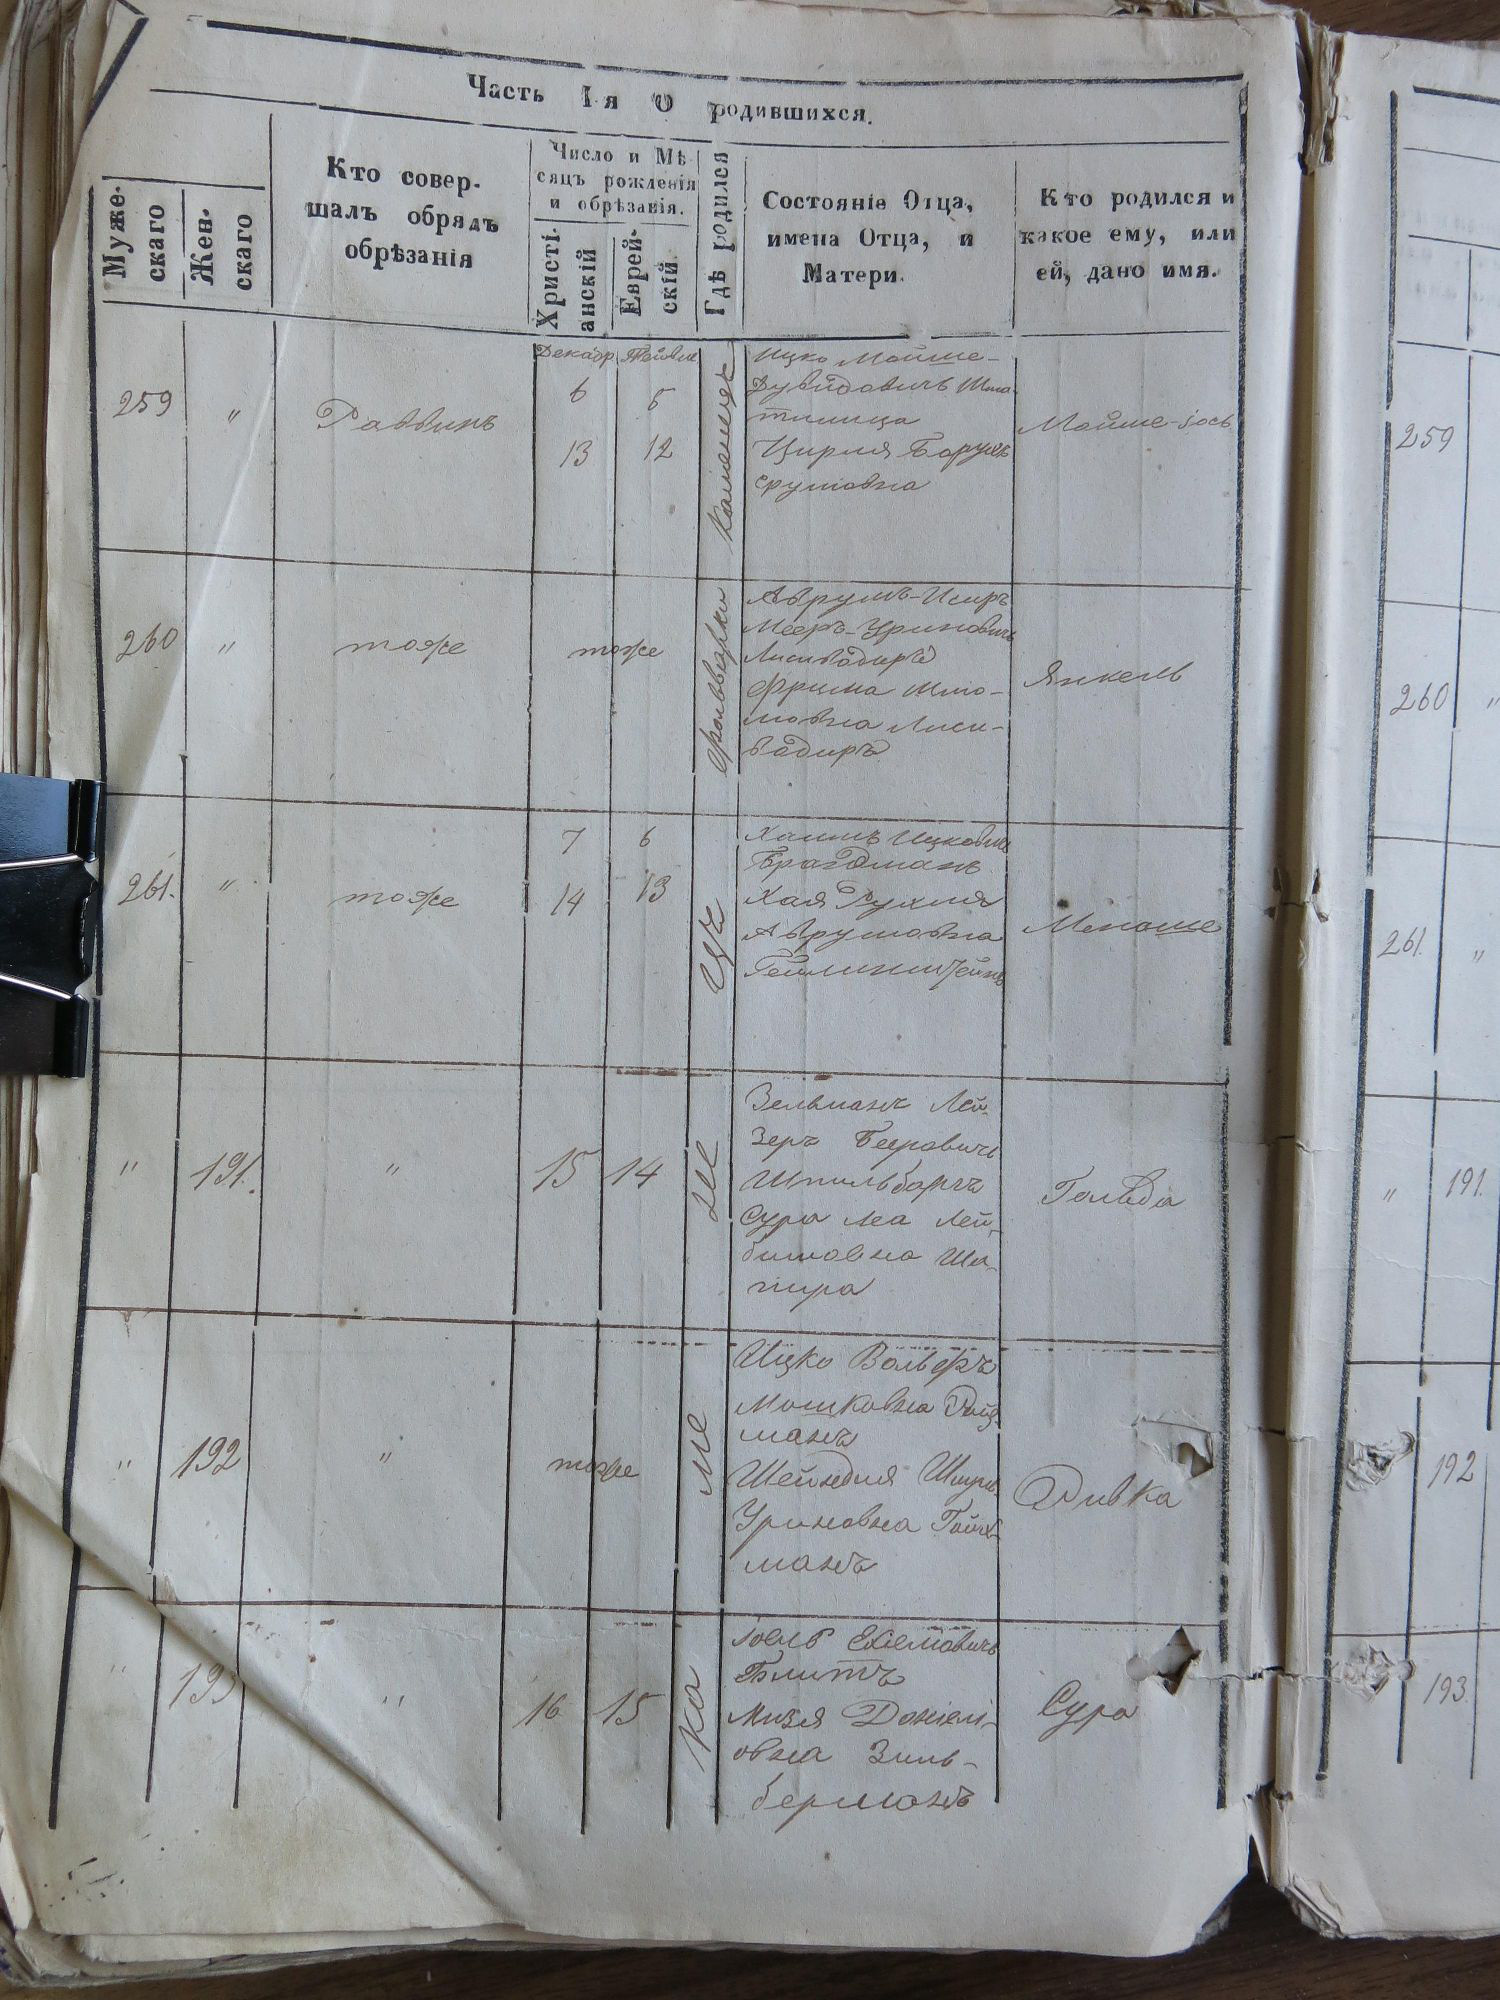 Часть Iя О родившихся.
Муже-
скаго
Жен-
скаго
Кто совер-
шалъ обрядъ
обрѣзанія
Число и Мѣ
сяцъ рожденія
и обрѣзанія.
Христі-
анскій
Еврей-
скій.
Гдѣ родился
Состояніе Отца,
имена Отца, и
Матери.
Кто родился и
какое ему, или
ей, дано имя.
259
"
Раввинъ
Декабр
6
13
5
12
Каменецъ
Ицко Мойше-
Дувидовичъ
Цирля Борухъ
Срулювна
Мойше-Іось
260
"
тоже
тоже
Аврумъ-
Мееръ-Уриновичъ
Фрима Шмо-
Янкель
261.
"
тоже
7
14
6
13
Хаимъ Ицковичъ
Брагдманъ
Хая Рухля
Аврумовна
Менаше
"
191.
"
15
14
Зельманъ Лей-
зеръ Беровичъ
Шпильбаргъ
Сура Леа Лей-
бишовна Ша-
пира
Гольда
"
192
"
тоже
Ицко Вольфъ
Мошковна Ройз-
манъ
Шейндля Шмул-
Уриновна
манъ
Ривка
"
193
"
16
15
ка
ме
не
цъ
Іоель Ехіелювичъ
Блитъ
Мизя Доніелі-
овна Зиль-
берманъ
Сура
259
260
"
261.
"
"
191.
192
193.